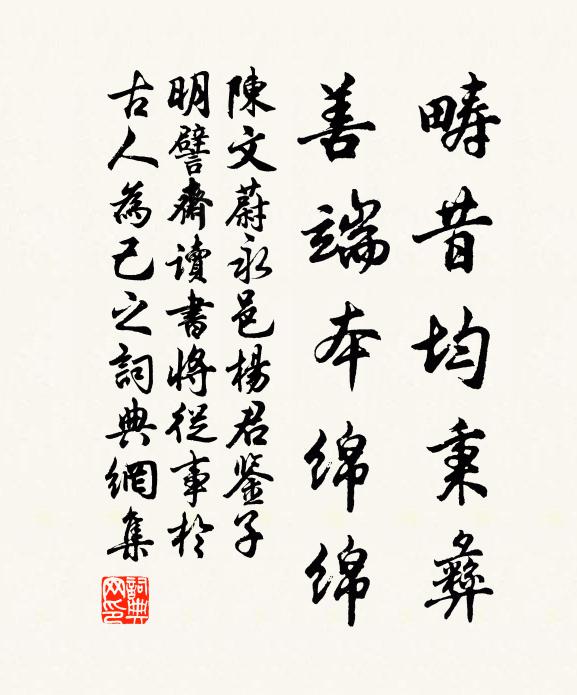 疇昔均秉彝
善端本綿綿
陳文蔚永邑楊君鉴子
明譬齋讀書將從事於
古人為己之詞典網集
詞典
网印